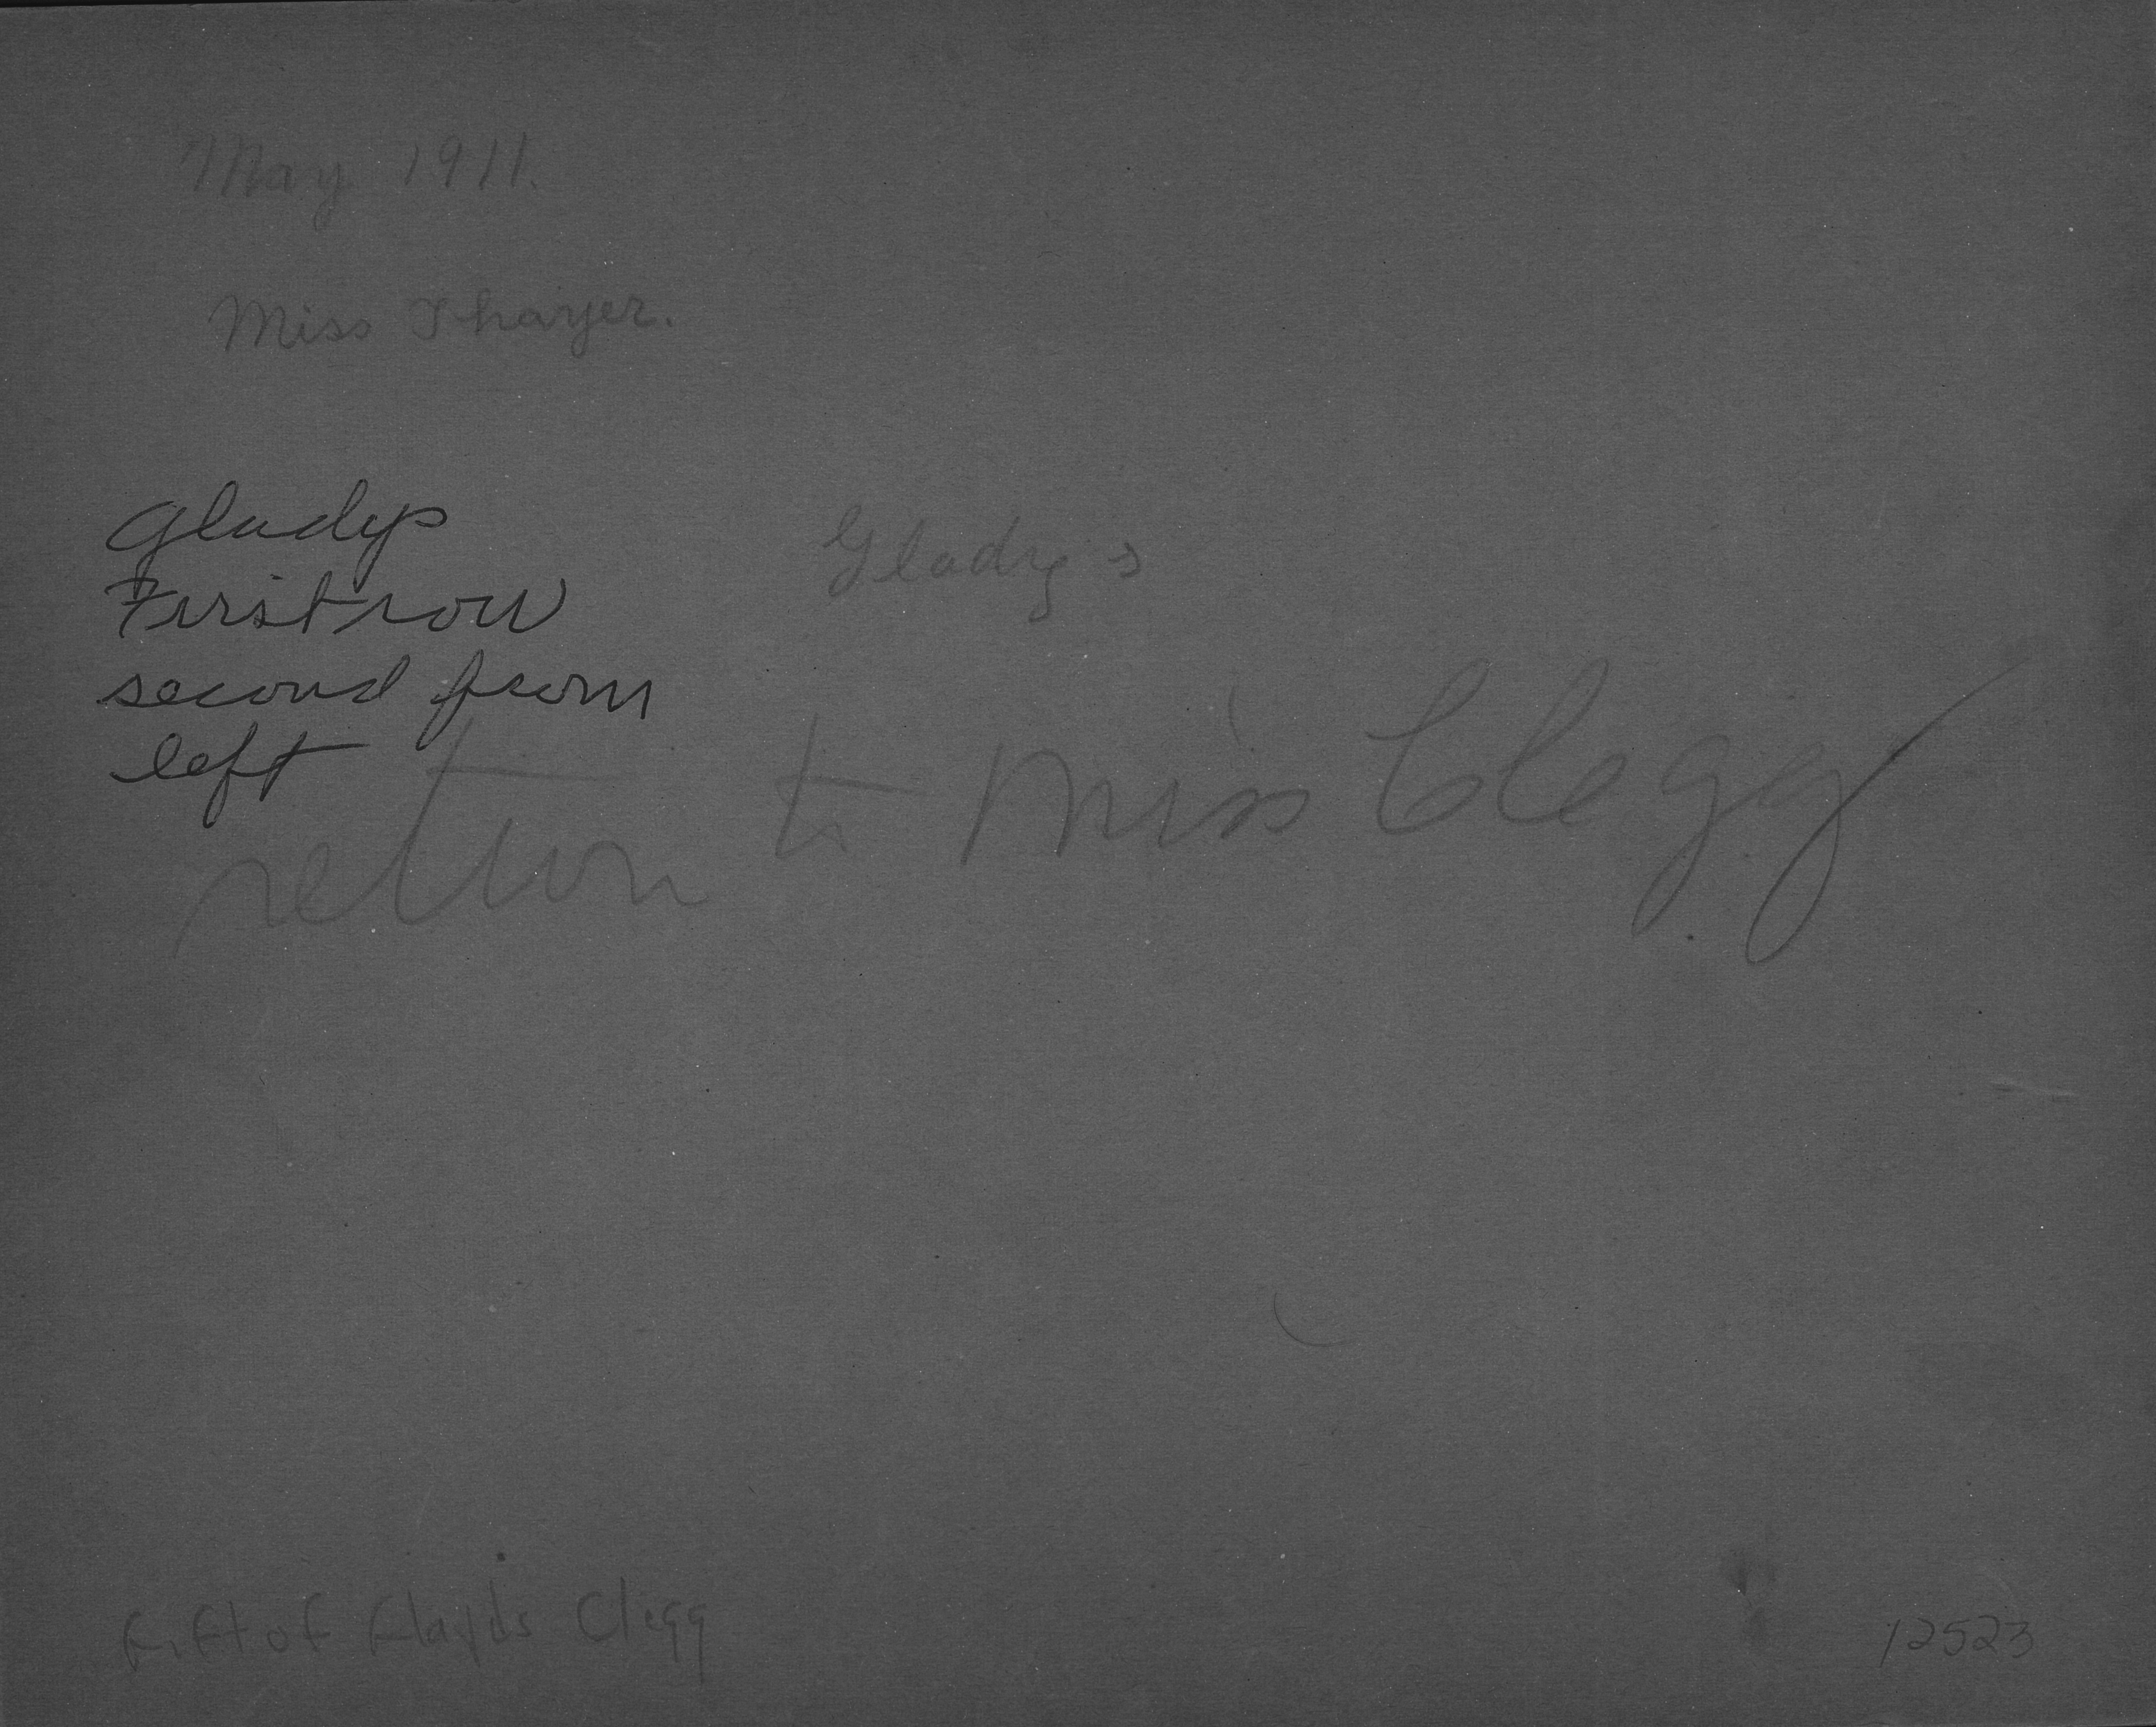 May 1911.
Miss Thayer.
Gladys
First row
second from
left
Gladys
return to Miss Clegg
Gift of Gladys Clegg
12523